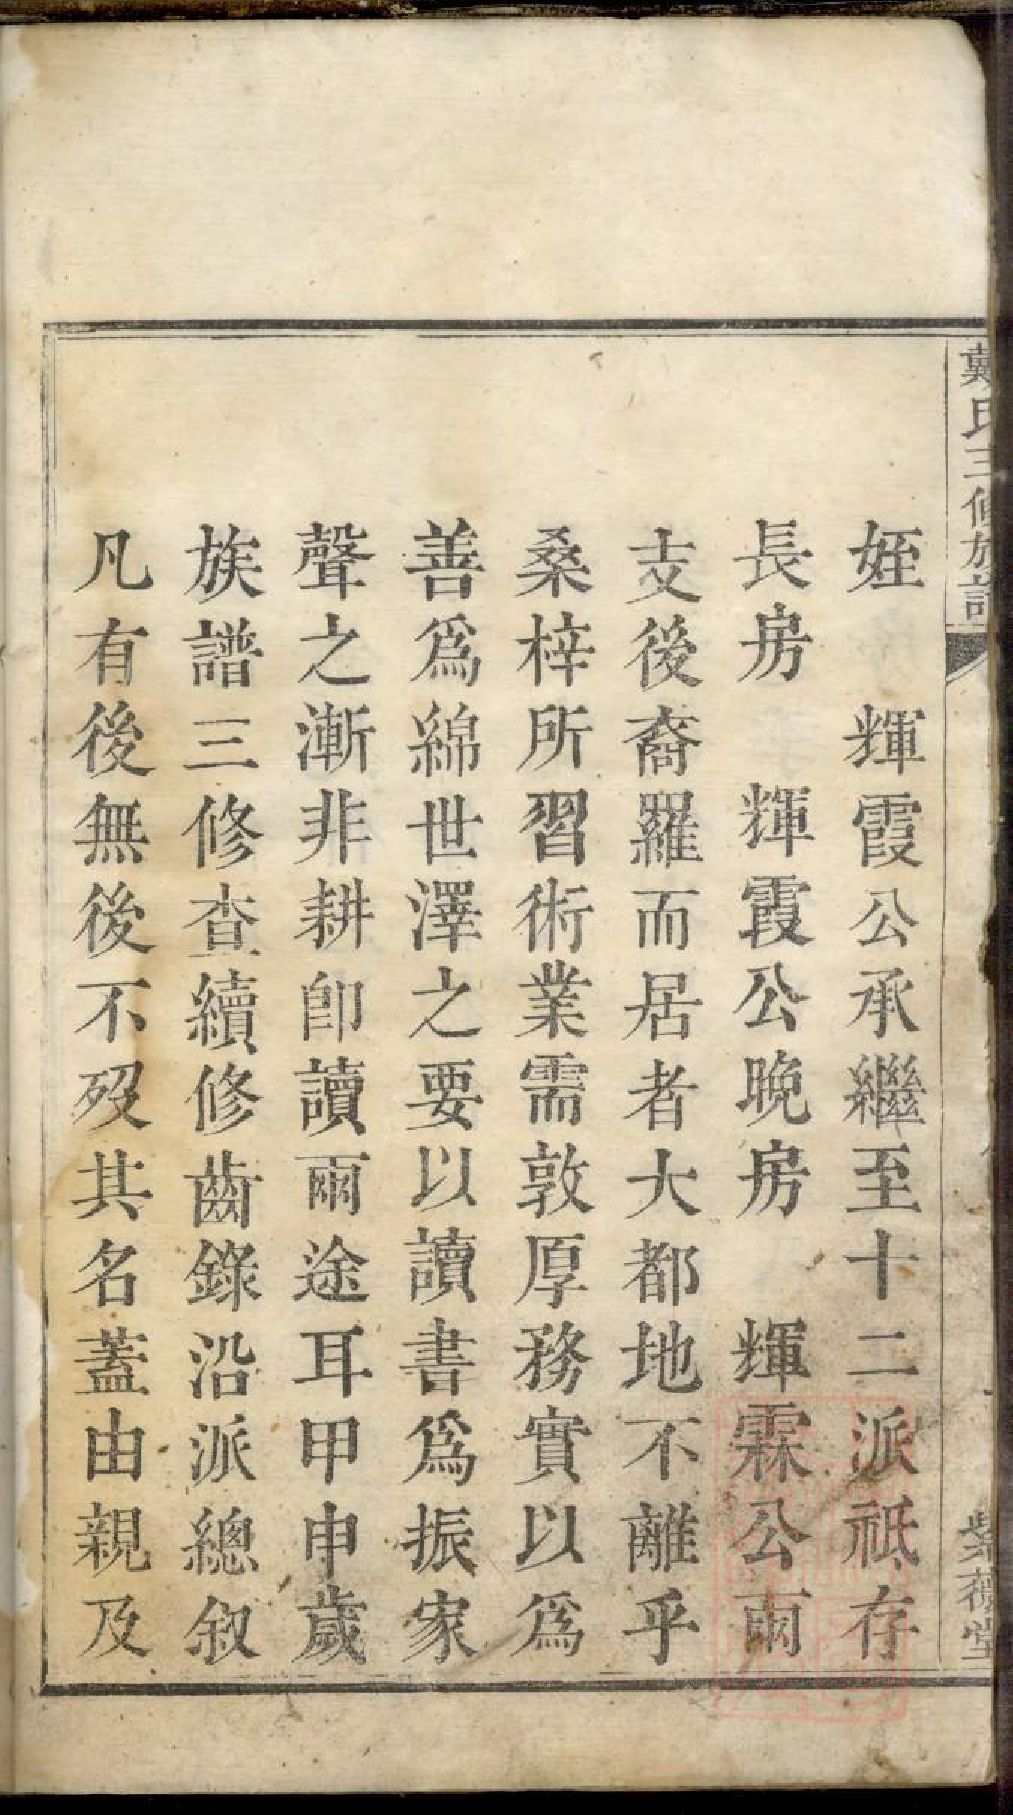 戴氏三修族譜
紫薇堂
姪　輝霞公承繼至十二派祗存
長房　輝霞公晚房　輝霖公兩
支後裔羅而居者大都地不離乎
桑梓所習術業需敦厚務實以爲
善爲綿世澤之要以讀書爲振家
聲之漸非耕卽讀兩途耳甲申歲
族譜三修查續修齒錄沿派總叙
凡有後無後不歿其名蓋由親及